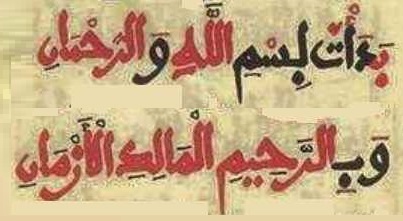 بَدَأْتُ بِسْمِ اللَّهِ وَالرَّحْمَانِ
وَبِالرَّحِيمِ الْمَالِكِ الْأَزْمَانِ